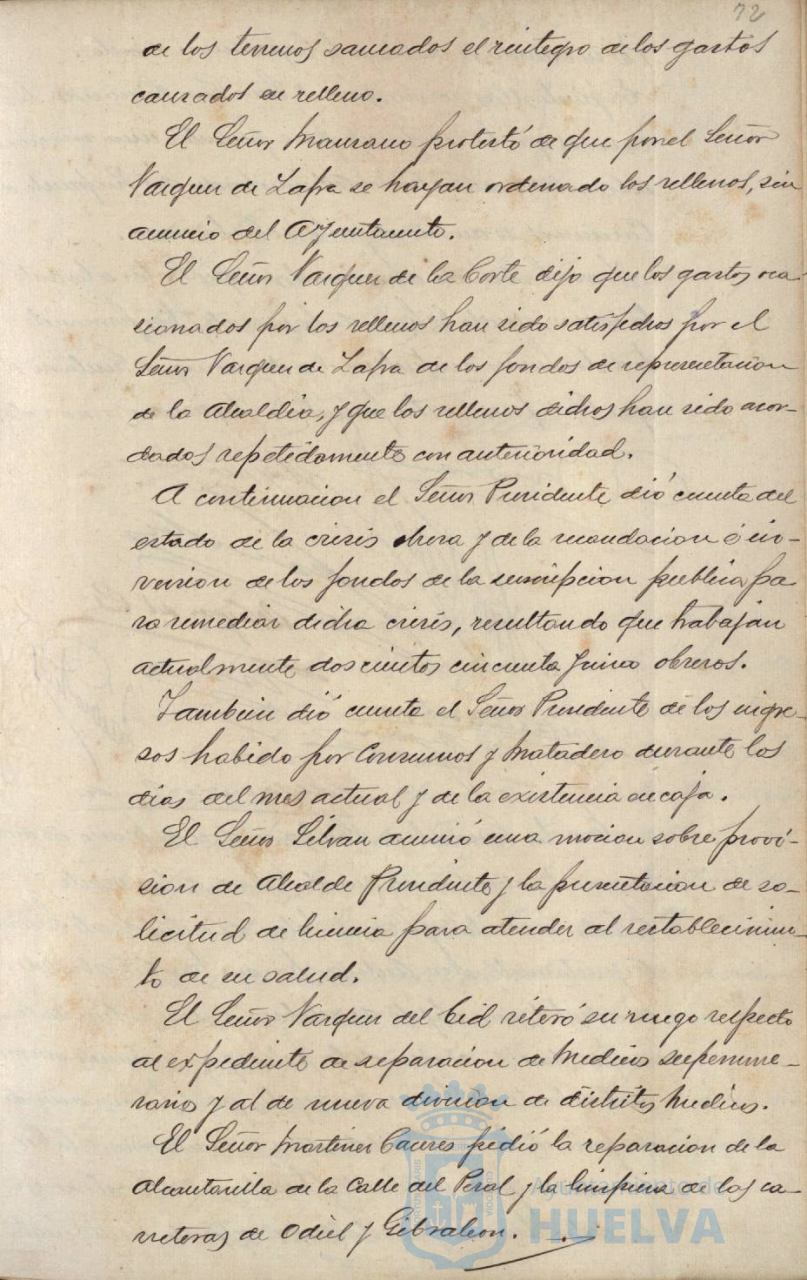 72
de los terrenos saneados el reintegro de los gastos
causados en relleno.
El Señor Manzano protestó de que por el Señor
Vazquez de Zafra se hayan ordenado los rellenos, sin
anuncio del Ayuntamto.
El Señor Vazquez de la Corte dijo que los gastos oca-
sionados por los rellenos han sido satisfechos por el
Señor Vazquez de Zafra de los fondos de representacion
de la Alcaldia, y que los rellenos dichos han sido acor-
dados repetidamente con anterioridad.
A continuacion el Señor Presidente dió cuenta del
estado de la crisis obrera y de la recaudacion é in-
version de los fondos de la suscripcion publica pa
ra remediar dicha crisis, resultando que trabajan
actualmente doscientos cincuenta y cinco obreros.
Tambien dió cuenta el Señor Presidente de los ingre-
sos habido por Consumos y Matadero durante los
dias del mes actual y de la existencia en caja.
El Señor Silvan anunció una mocion sobre provi-
sion de Alcalde Presidente y la presentacion de so-
licitud de licencia para atender al restablecimien-
to de su salud.
El Señor Vazquez del Cid reiteró su ruego respecto
al expediente de separacion de Medicos supernume-
rarios y al de nueva division de distritos medicos.
El Señor Martinez Caceres pidió la reparacion de la
Alcantarilla de la Calle del Peral y la limpieza de las ca-
rreteras de Odiel y Gibraleon.
Ayuntamiento de
HUELVA